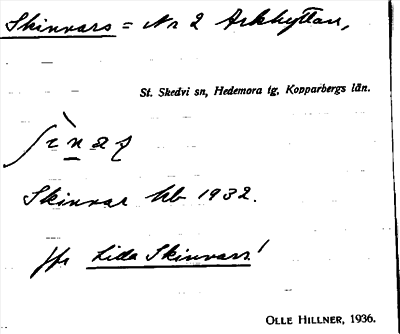 Skinnars = Nr 2 Arkhyttan,
St. Skedvi sn, Hedemora tg, Kopparbergs län.
Skinnar hb 1932.
jfr Lilla Skinnars!
OLLE HILLNER, 1936.